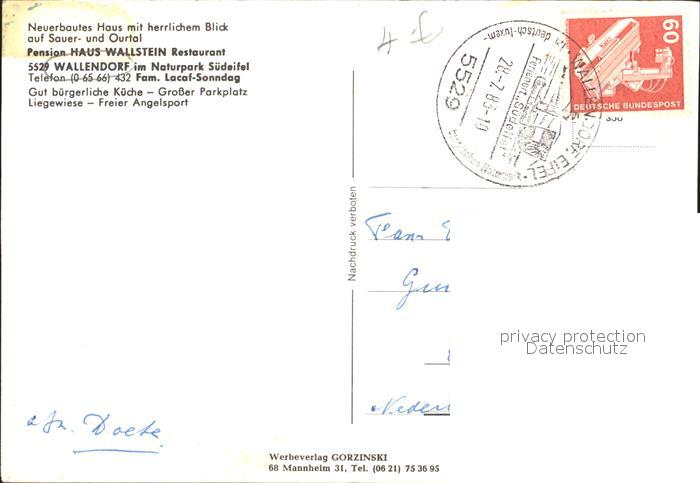 Neuerbautes Haus mit herrlichem Blick
auf Sauer- und Ourtal
Pension HAUS WALLSTEIN Restaurant
5529 WALLENDORF im Naturpark Südeifel
Telefon (0 65 66) 432 Fam. Lacaf-Sonndag
Gut bürgerliche Küche – Großer Parkplatz
Liegewiese – Freier Angelsport
4
WALLENDORF, EIFEL
deutsch-luxem-
5529
28.-7.83-10
Ferienort Südeifel
60
DEUTSCHE BUNDESPOST
Nachdruck verboten
Fam.
privacy protection
Datenschutz
Neder
Doete.
Werbeverlag GORZINSKI
68 Mannheim 31, Tel. (06 21) 75 36 95